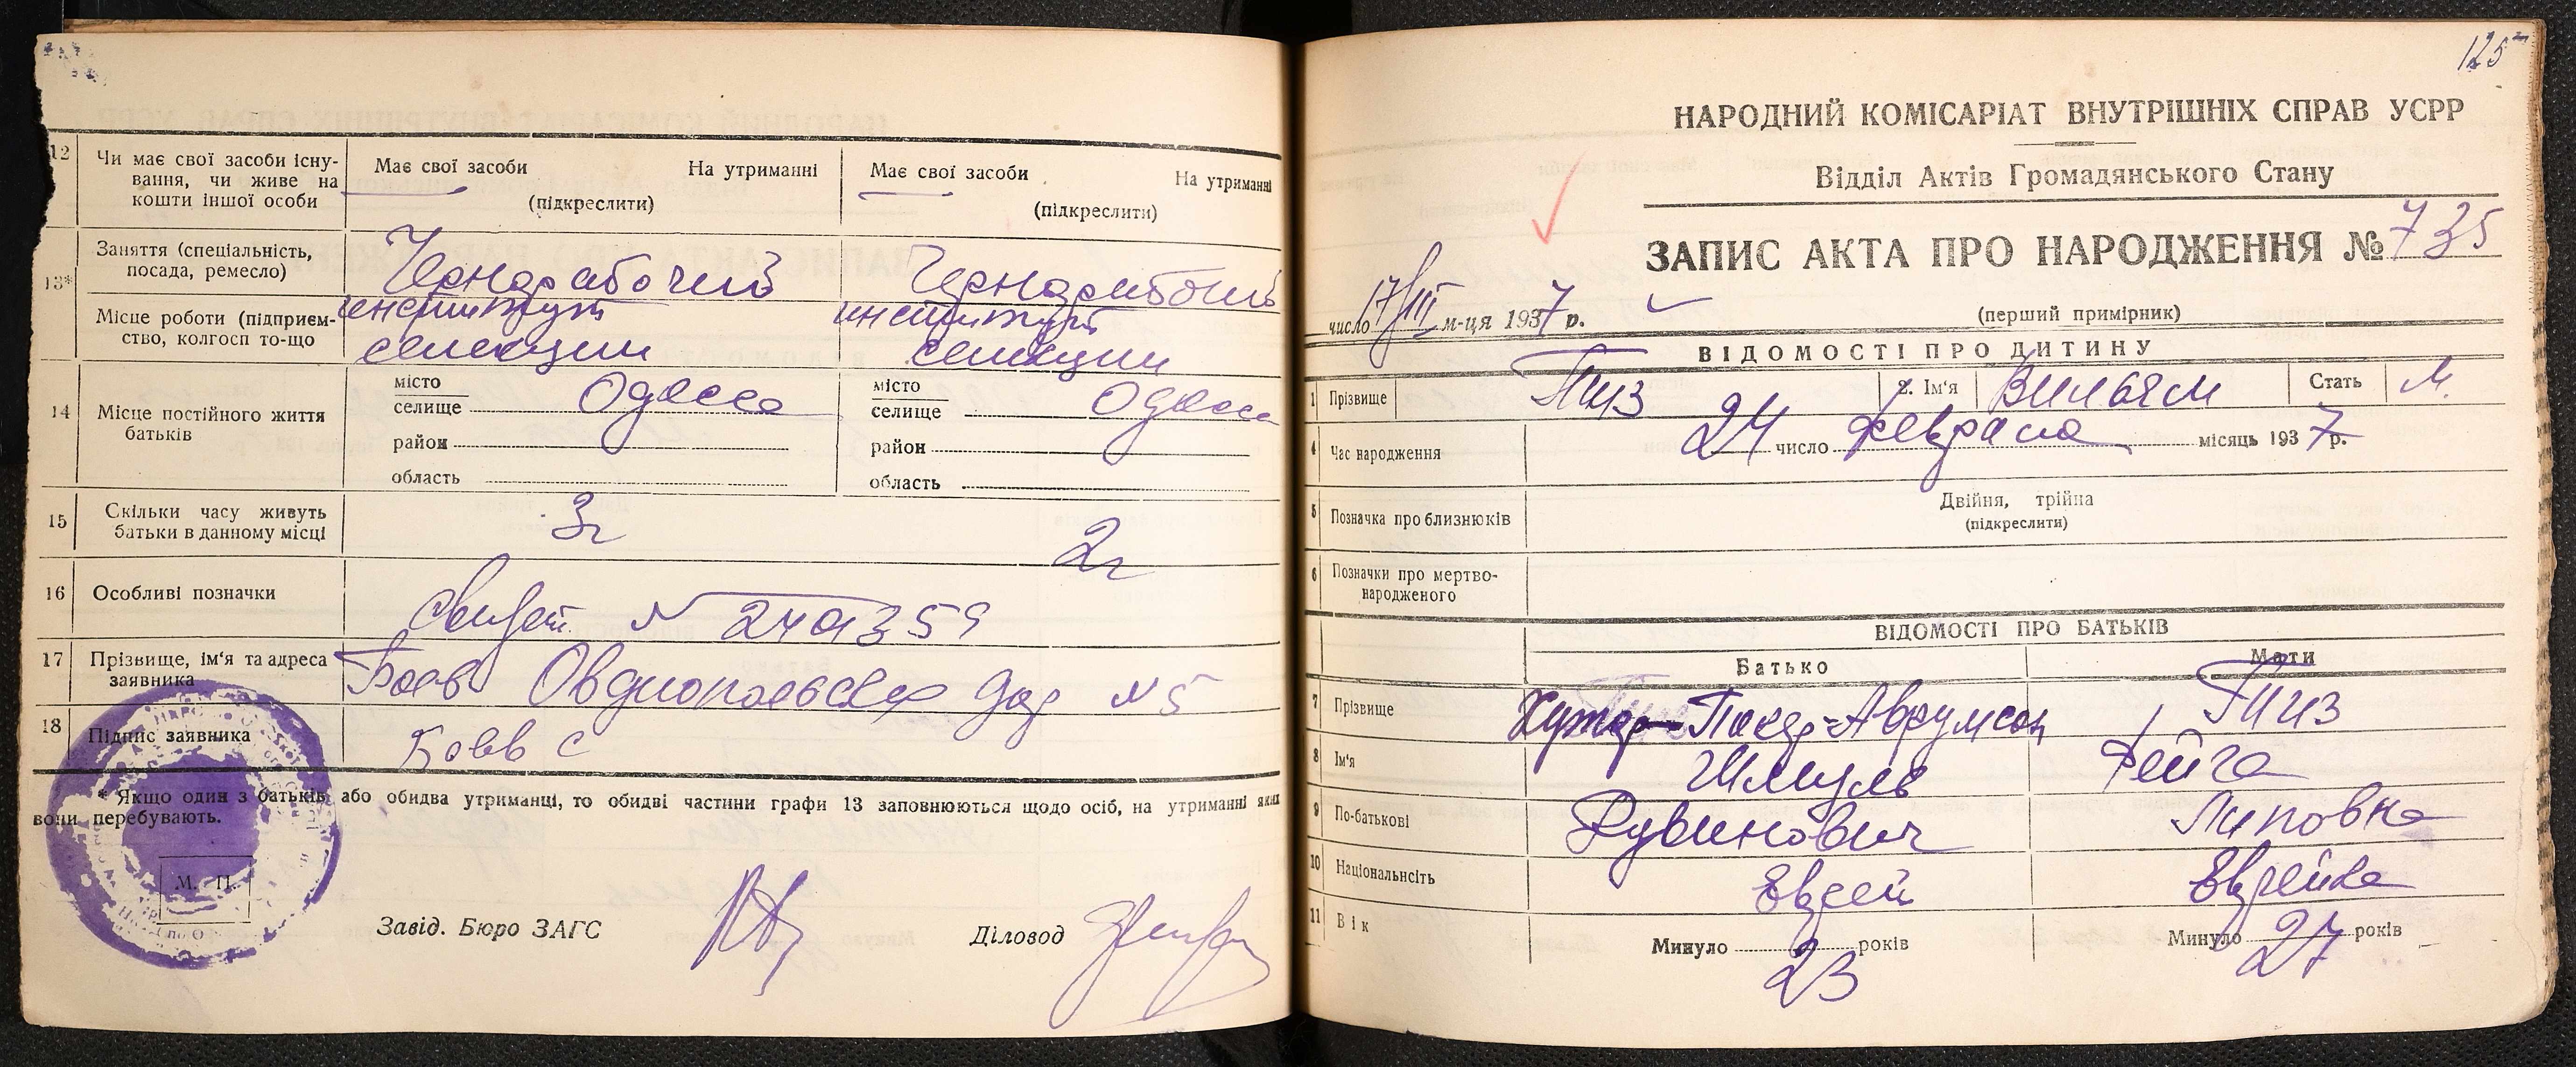 12 Чи має свої засоби існування, чи живе на кошти іншої особи
Має свої засоби На утриманні
(підкреслити)
Має свої засоби На утриманні
(підкреслити)
13* Заняття (спеціальність, посада, ремесло)
Чернорабочий
Чернорабочий
Місце роботи (підприємство, колгосп то-що
институт
селекции
институт
селекции
14 Місце постійного життя батьків
місто
селище Одесса
район
область
місто
селище Одесса
район
область
15 Скільки часу живуть батьки в данному місці
3г
2г
16 Особливі позначки
Свидет. N 240359
17 Прізвище, ім'я та адреса заявника
Боев Овдиопольская дор N 5
18 Підпис заявника
Боев С
* Якщо один з батьків або обидва утриманці, то обидві частини графи 13 заповнюються щодо осіб, на утриманні яких
вони перебувають.
М. П.
Завід. Бюро ЗАГС
Діловод
125
НАРОДНИЙ КОМІСАРІАТ ВНУТРІШНІХ СПРАВ УСРР
Відділ Актів Громадянського Стану
ЗАПИС АКТА ПРО НАРОДЖЕННЯ № 735
число 17/III м-ця 1937 р.
(перший примірник)
ВІДОМОСТІ ПРО ДИТИНУ
1 Прізвище Тиз 2. Ім'я Вильям Стать М.
4 Час народження 24 число февраля місяць 1937 р.
5 Позначка про близнюків
Двійня, трійна
(підкреслити)
6 Позначки про мертвонародженого
ВІДОМОСТІ ПРО БАТЬКІВ
Батько Мати
7 Прізвище
Аврумсон Тиз
8 Ім'я Шмуль Фейга
9 По-батькові Рувинович Липовна
10 Національнсіть Еврей Еврейка
11 Вік
Минуло 23 років
Минуло 27 років